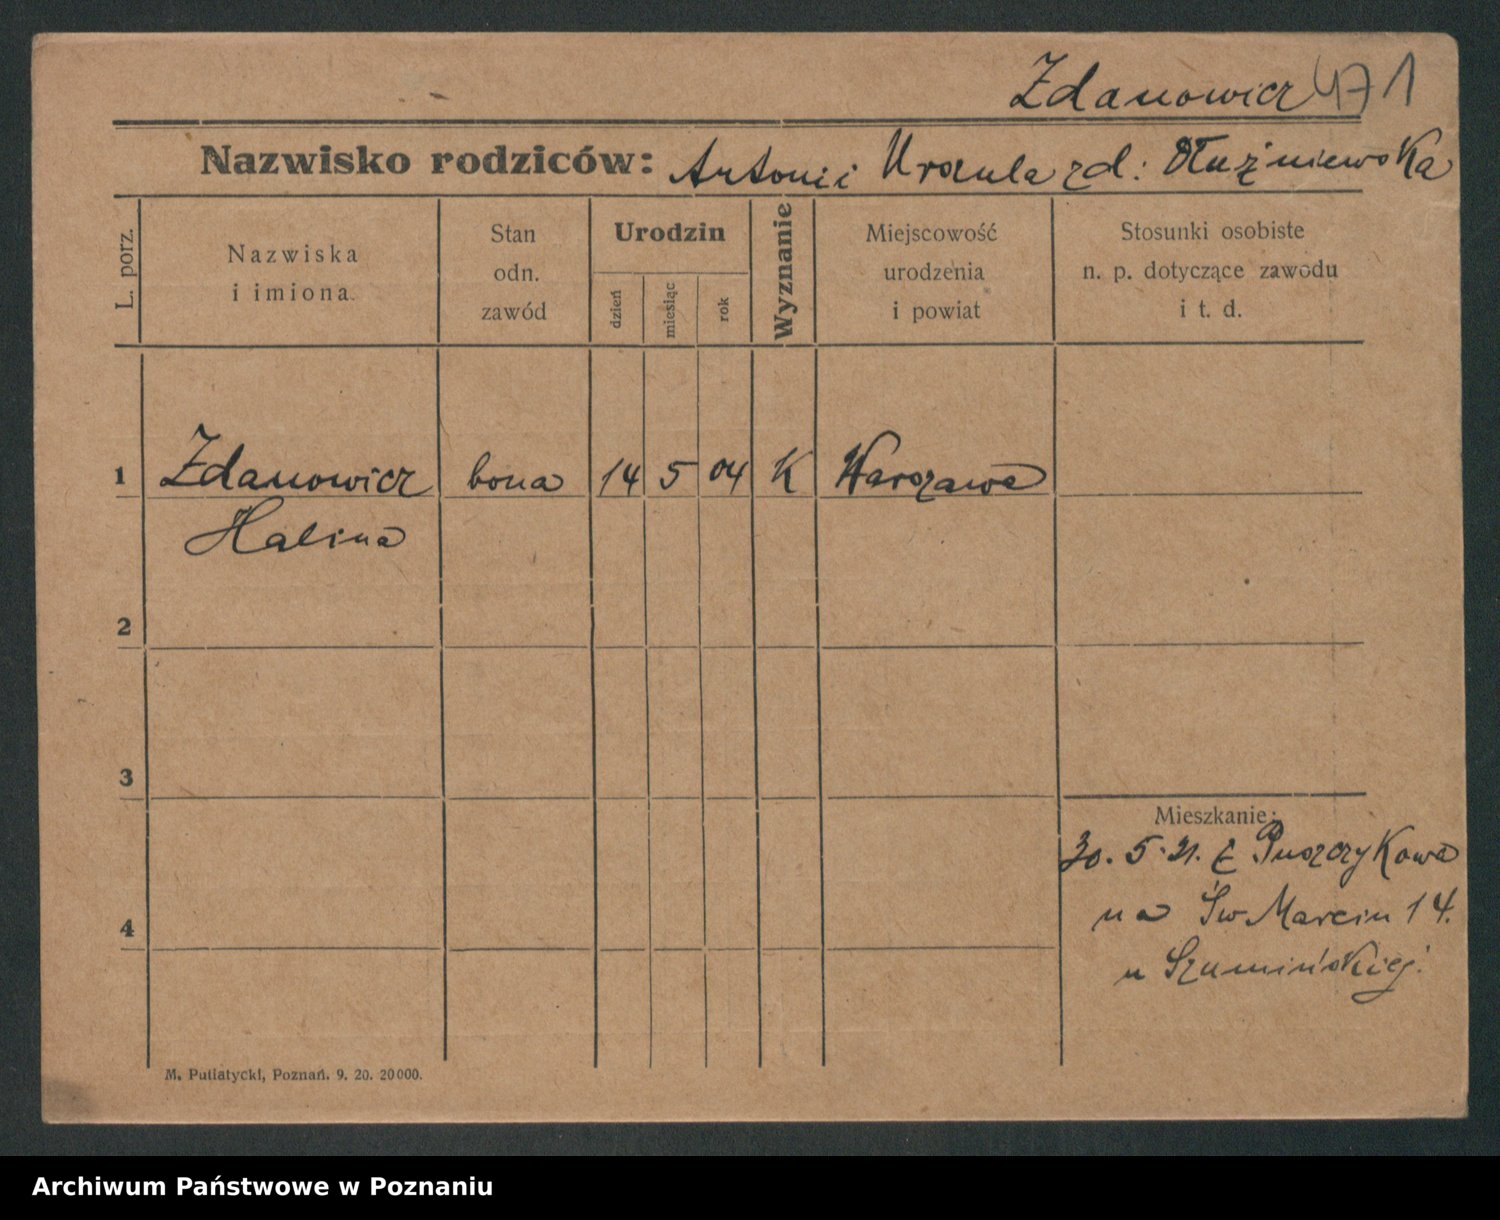 Zdanowicz 471
Nazwisko rodziców: Antoni i Urszula zd: Kuźniewska
L. porz.
Nazwiska
i imiona.
Stan
odn.
zawód
Urodzin
dzień
miesiąc
rok
Wyznanie
Miejscowość
urodzenia
i powiat
Stosunki osobiste
n. p. dotyczące zawodu
i t. d.
1 Zdanowicz bona 14 5 04 K Warszawa
Halina
2
3
4
Mieszkanie:
30. 5. 21. z Puszczykowa
na Św. Marcin 14.
u Szumińskiej.
M. Putiatycki, Poznań. 9. 20. 20000.
Archiwum Państwowe w Poznaniu